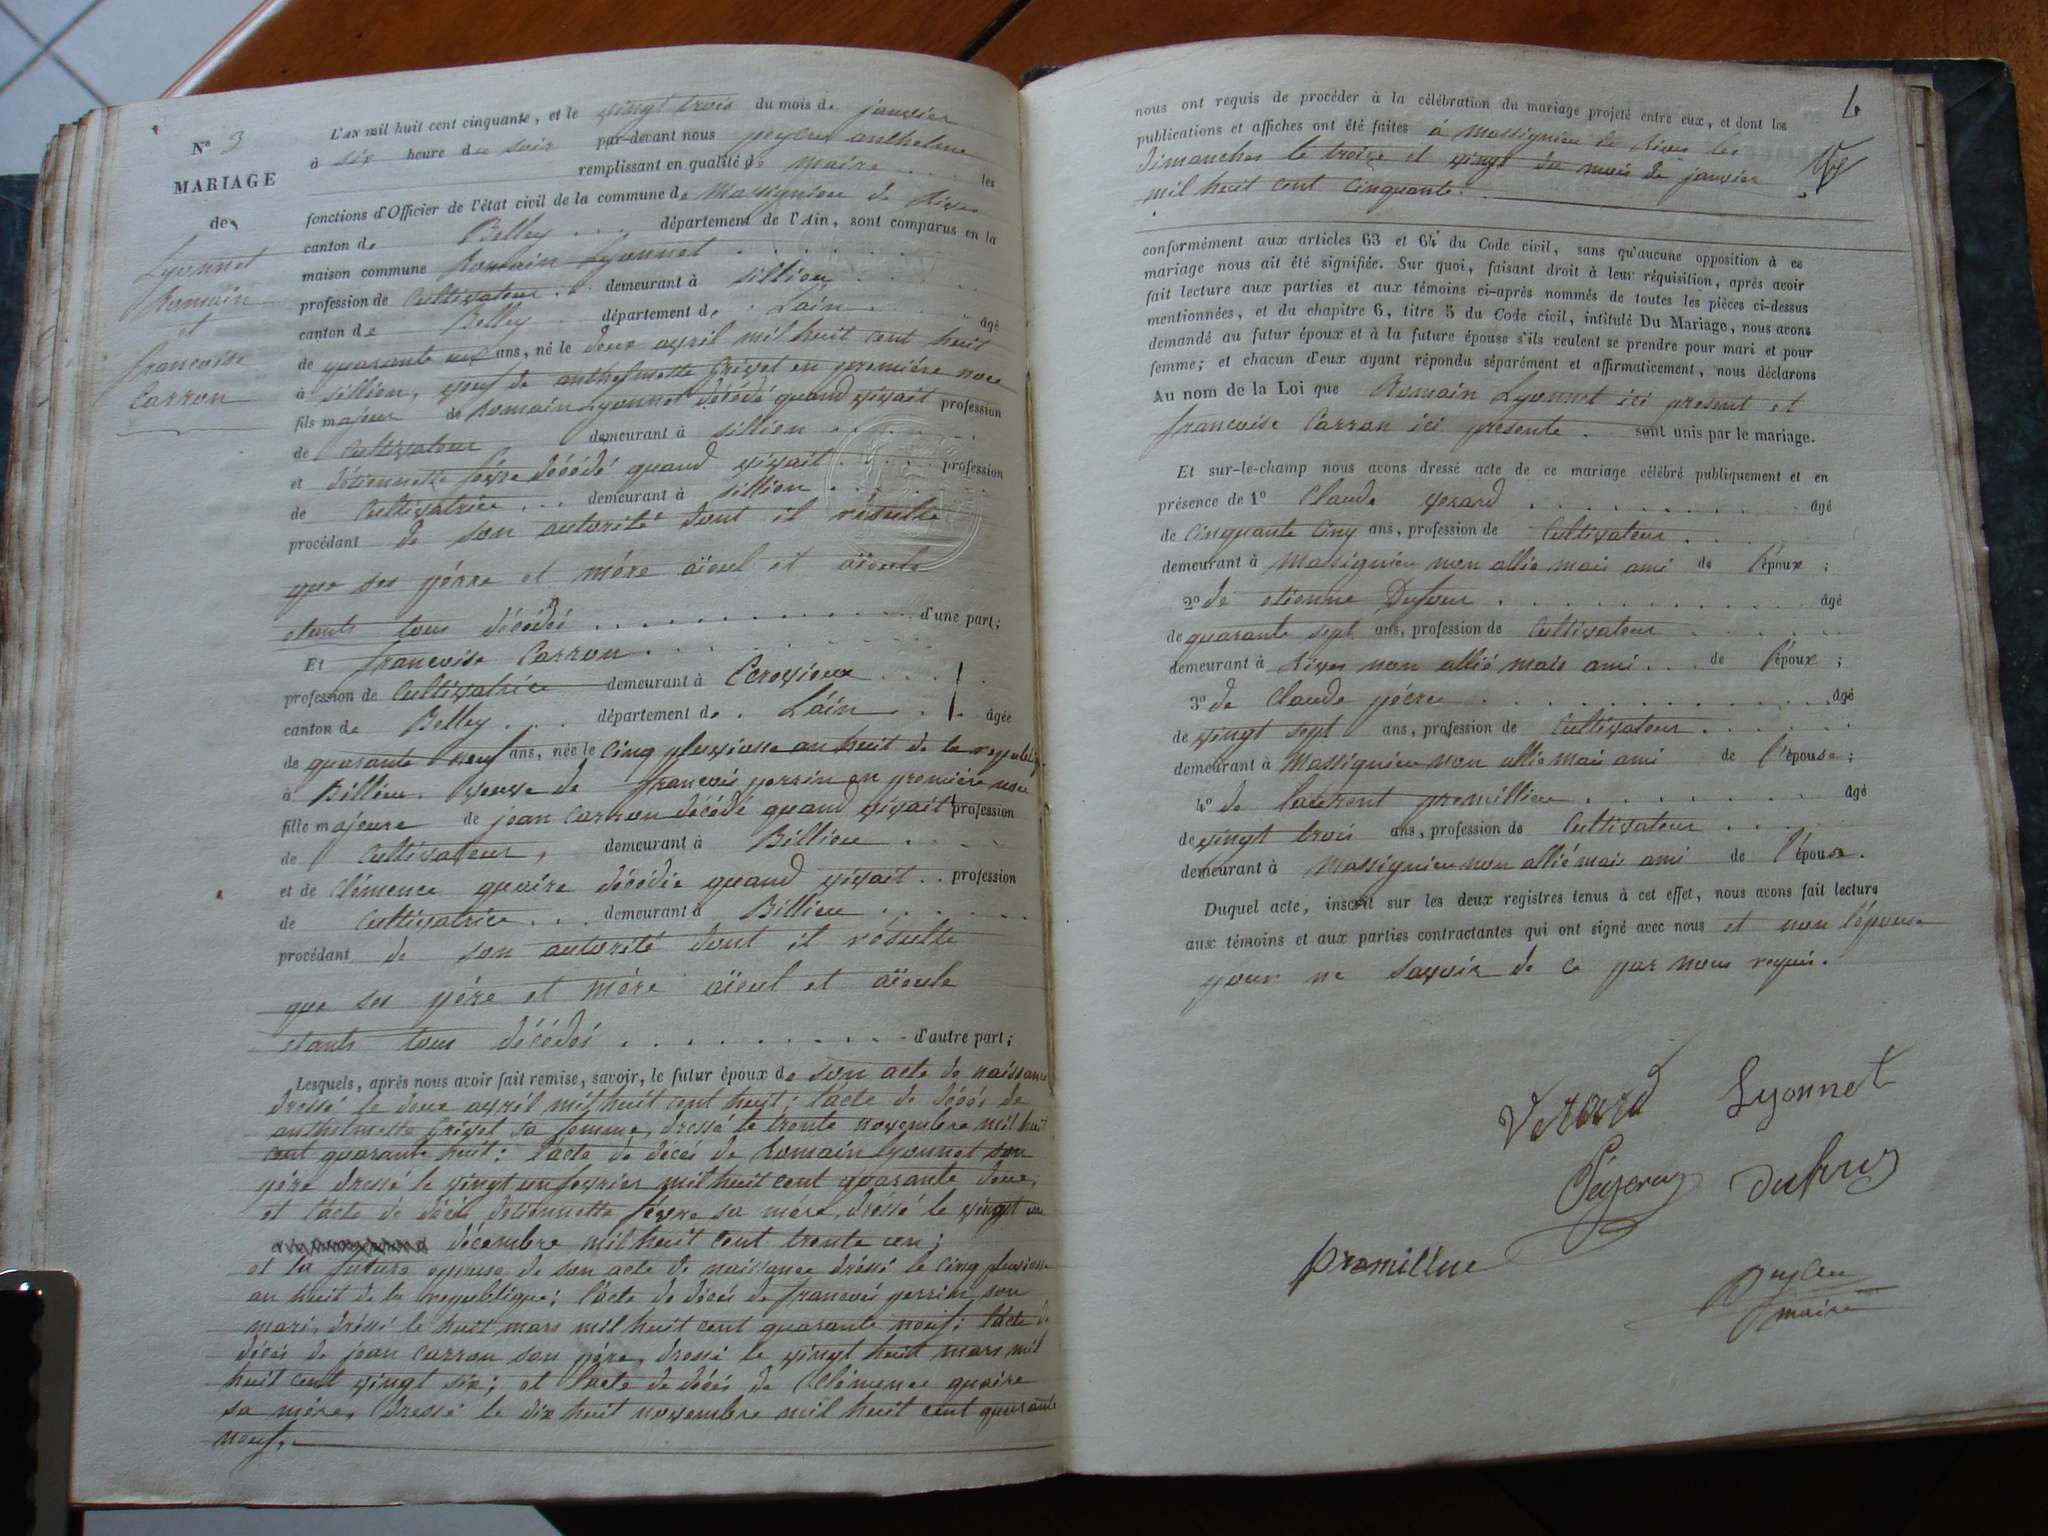 N° 3
MARIAGE
de
Lyonnet
Romain
et
francoise
Carron
L'AN mil huit cent cinquante, et le vingt trois du mois de janvier
à six heure du soir par-devant nous peyleu anthelme
remplissant en qualité de maire les
fonctions d'Officier de l'état civil de la commune de Massignieu de Rives
canton de Belley département de l'Ain, sont comparus en la
maison commune Romain Lyonnet
profession de Cultivateur demeurant à sillieu
canton de Belley département de Lain âgé
de quarante ans, né le deux avril mil huit cent huit
à sillieu, veuf de anthelmette Grisot en premiére noce
fils majeur de Romain Lyonnet décédé quand vivait profession
de Cultivateur demeurant à sillieu
et détiennette févre décédé quand vivait profession
de Cultivatrice demeurant à sillieu
procédant de son autorité dont il résulte
que ses pérre et mére aïeul et aïeule
etants tous décédés d'une part;
Et francoise Carron
profession de Cultivatrice demeurant à Ecrovieux
canton de Belley département de Láin âgée
de quarante neuf ans, née le Cinq pluviose an huit de la republique
à Billieu. veuve de francois perrin en premiére noce
fille majeure de jean Carron décédé quand vivait profession
de Cultivateur, demeurant à Billieu
et de Clémence quaire décédée quand vivait profession
de Cultivatrice demeurant à Billieu
procédant de son autorité dont il résulte
que ses pére et mére aïeul et aïeule
etants tous décédés d'autre part;
Lesquels, après nous avoir fait remise, savoir, le futur époux de son acte de naissance
dressé le deux avril mil huit cent huit; l'acte de décés de
anthelmette Grisot sa femme, dressé le trente novembre mil huit
cent quarante huit; l'acte de décés de Romain Lyonnet son
pére dressé le vingt un fevrier mil huit cent quarante deux;
et l'acte de décés détiennette févre sa mére, dressé le vingt un
décembre mil huit cent trente un;
et la future epouse de son acte de naissance dréssé le cinq pluviose
an huit de la republique; l'acte de décés de francois perrin son
mari, dréssé le huit mars mil huit cent quarante neuf; l'acte de
décés de jean Carron son pére, dressé le vingt huit mars mil
huit cent vingt six; et l'acte de décés de Clémence quaire
sa mére, dressé le dix huit novembre mil huit cent quarante
neuf.
6
nous ont requis de procéder à la célébration du mariage projeté entre eux, et dont les
publications et affiches ont été faites à Massignieu de Rives les
dimanches le treize et vingt du mois de janvier
mil huit cent cinquante.
conformément aux articles 63 et 64 du Code civil, sans qu'aucune opposition à ce
mariage nous ait été signifiée. Sur quoi, faisant droit à leur réquisition, après avoir
fait lecture aux parties et aux témoins ci-après nommés de toutes les pièces ci-dessus
mentionnées, et du chapitre 6, titre 5 du Code civil, intitulé Du Mariage, nous avons
demandé au futur époux et à la future épouse s'ils veulent se prendre pour mari et pour
femme; et chacun d'eux ayant répondu séparément et affirmativement, nous déclarons
Au nom de la Loi que Romain Lyonnet ici présent et
francoise Carron ici présente sont unis par le mariage.
Et sur-le-champ nous avons dressé acte de ce mariage célébré publiquement et en
présence de 1° Claude verard âgé
de Cinquante Cinq ans, profession de Cultivateur
demeurant à Massignieu non allié mais ami de l'époux;
2° de etienne Dufour âgé
de quarante sept ans, profession de Cultivateur
demeurant à Rives non allié mais ami de l'époux;
3° de Claude âgé
de vingt sept ans, profession de Cultivateur
demeurant à Massignieu non allié mais ami de l'épouse;
4° de laurent premillieu âgé
de vingt trois ans, profession de Cultivateur
demeurant à Massignieu non allié mais ami de l'épouse.
Duquel acte, inscrit sur les deux registres tenus à cet effet, nous avons fait lecture
aux témoins et aux parties contractantes qui ont signé avec nous et non l'épouse
pour ne savoir de ce par nous requis.
Verard Lyonnet
premillue
maire